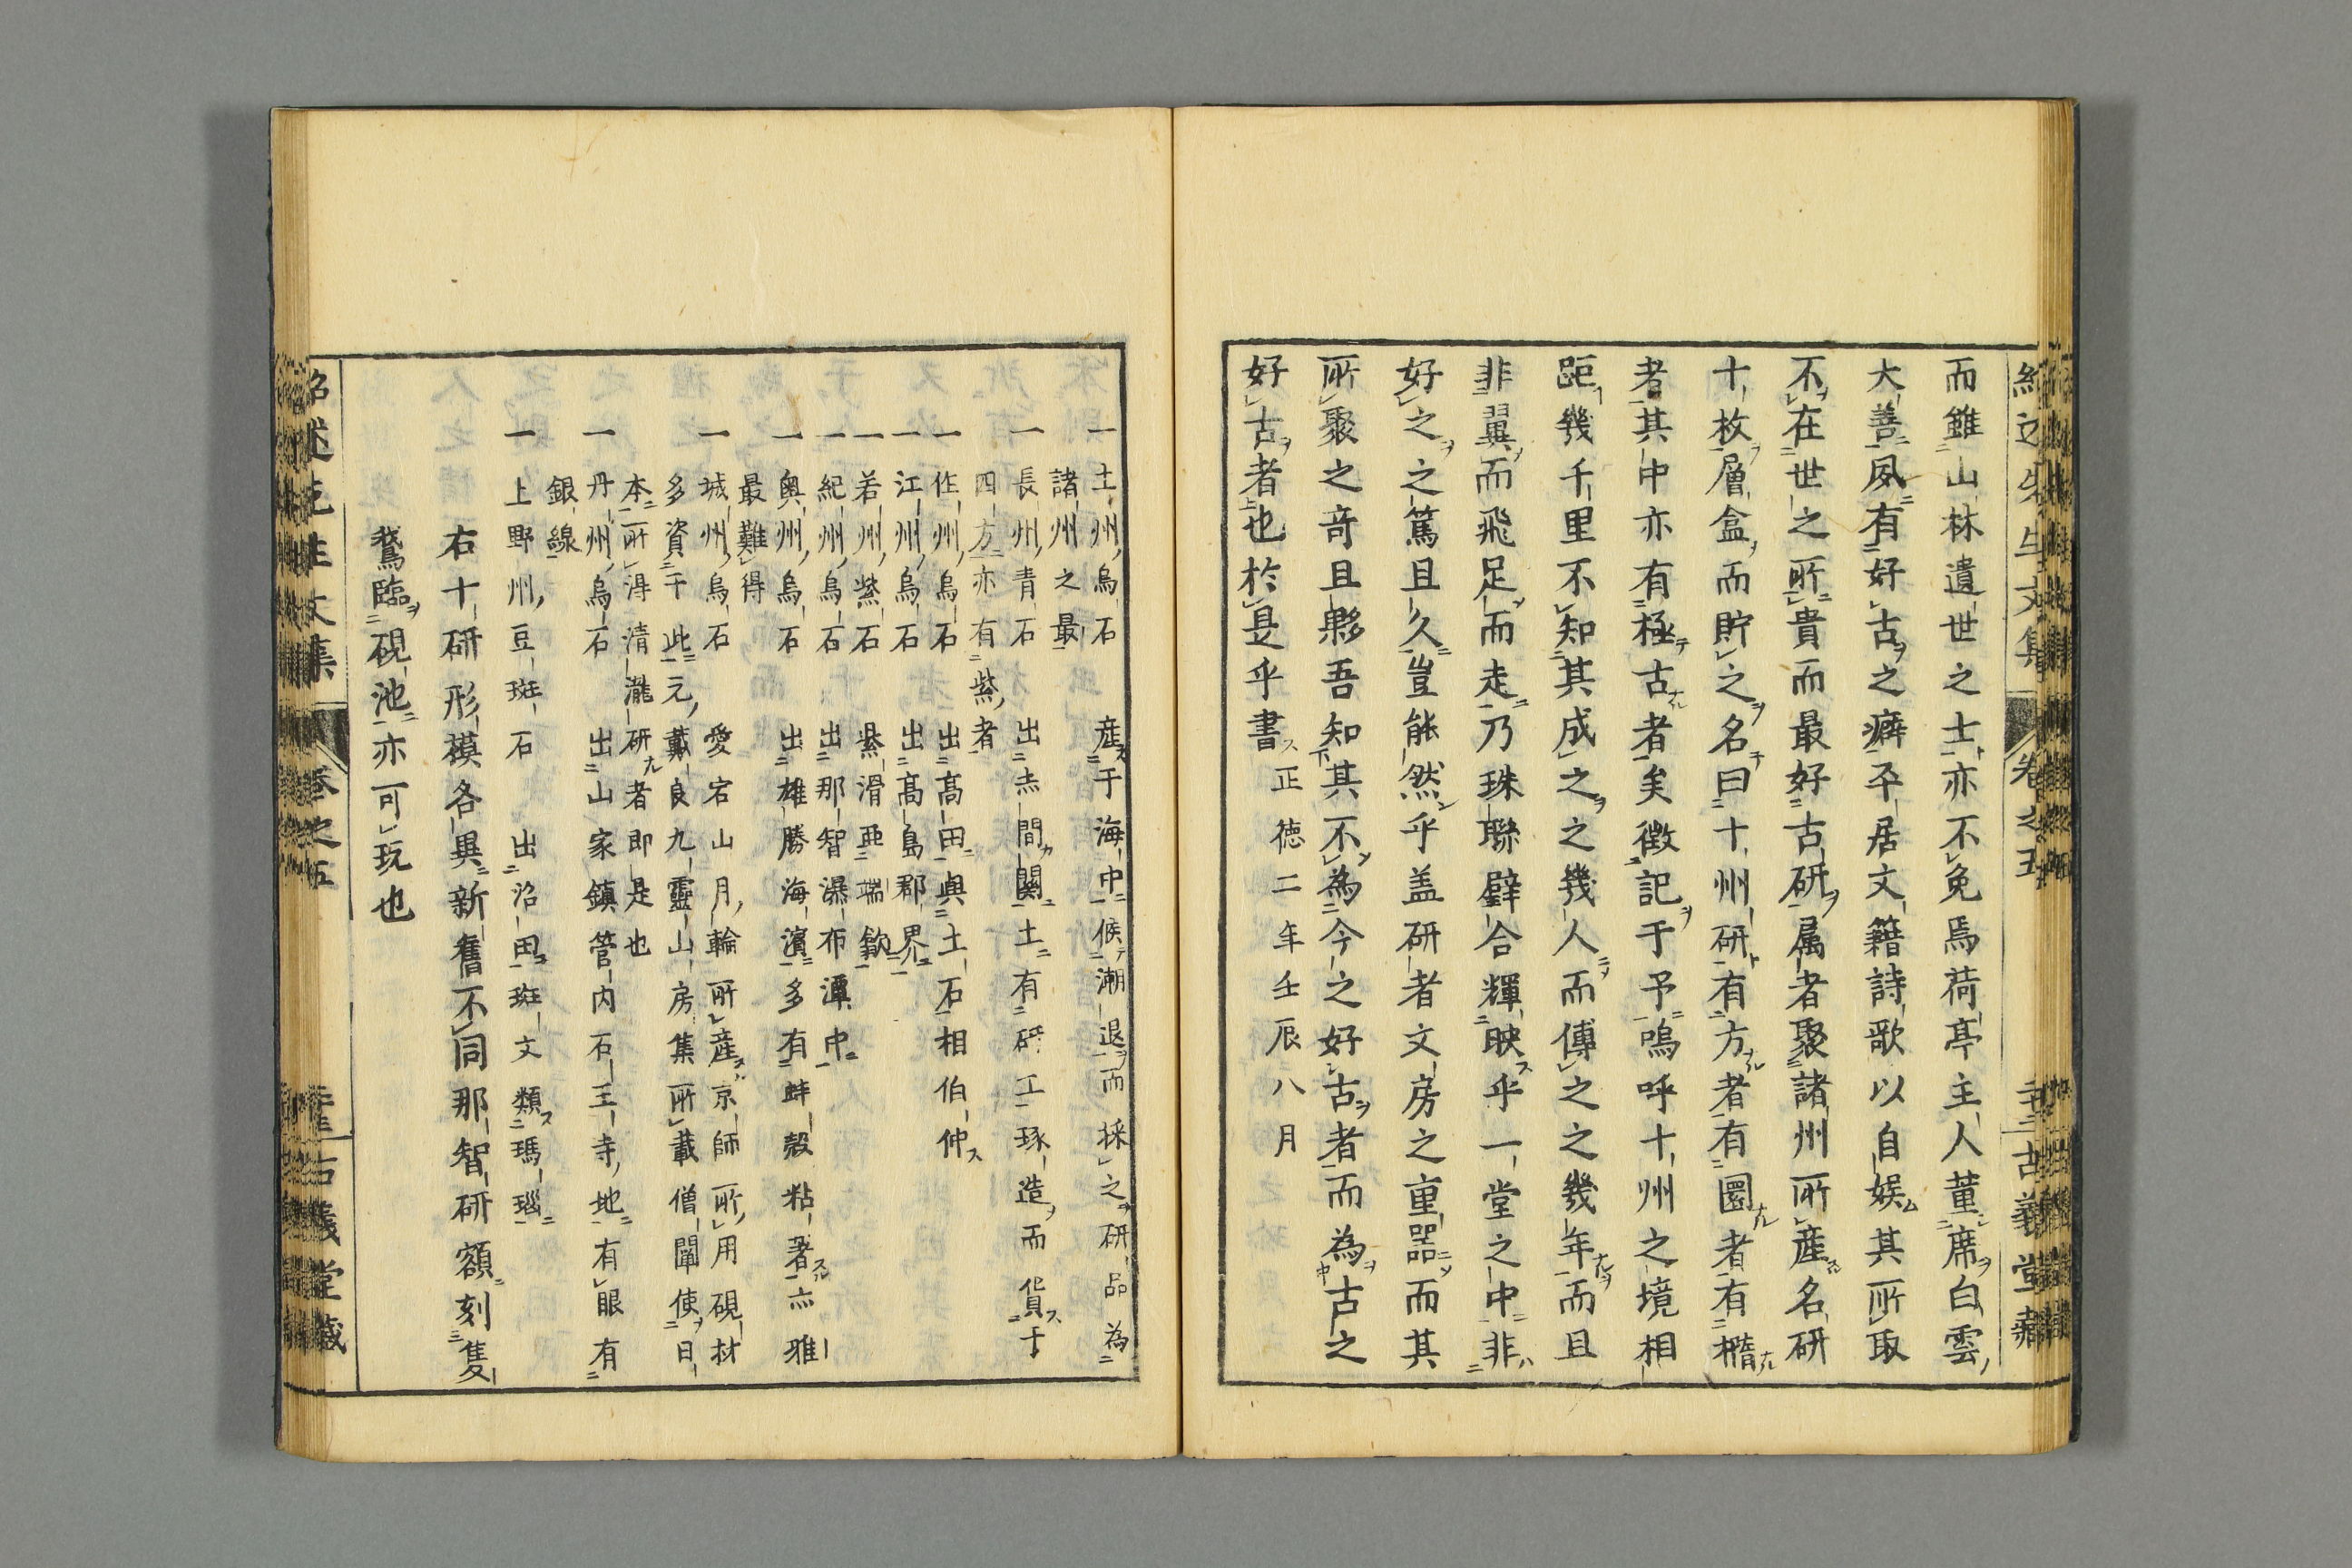 紹述先生文集 卷之五 古義堂藏
而雖山林遺世之士亦不免焉荷亭主人董席白雲
大善夙有好古之癖平居文籍詩歌以自娯其所取
不在世之所貴而最好古研属者聚諸州所産名研
十枚層盒而貯之名曰十州研有方者有圜者有橢
者其中亦有極古者矣徴記于予嗚呼十州之境相
距幾千里不知其成之之幾人而傳之之幾年而且
非翼而飛足而走乃珠聯璧合輝映乎一堂之中非
好之之篤且久豈能然乎盖研者文房之重器而其
所聚之奇且夥吾知其不為今之好古者而為古之
好古者也於是乎書 正徳二年壬辰八月
一土州烏石 産于海中候潮退而採之研品為
諸州之最
一長州青石 出赤間關土有研工琢造而貨于
四方亦有紫者
一作州烏石 出高田與土石相伯仲
一江州烏石 出高島郡界
一若州紫石 紫滑亞端歙
一紀州烏石 出那智瀑布潭中
一奥州烏石 出雄勝海濱多有蚌殻粘著亦雅
最難得
一城州烏石 愛宕山月輪所産京師所用硯材
多資于此元戴良九靈山房集所載僧闡使日
本所淂清瀧研者即是也
一丹州烏石 出山家鎮管内石王寺地有眼有
銀線
一上野州豆斑石 出沼田斑文類瑪瑙
右十研形模各異新舊不同那智研額刻隻
鵞臨硯池亦可玩也
紹述先生文集 卷之五 古義堂藏